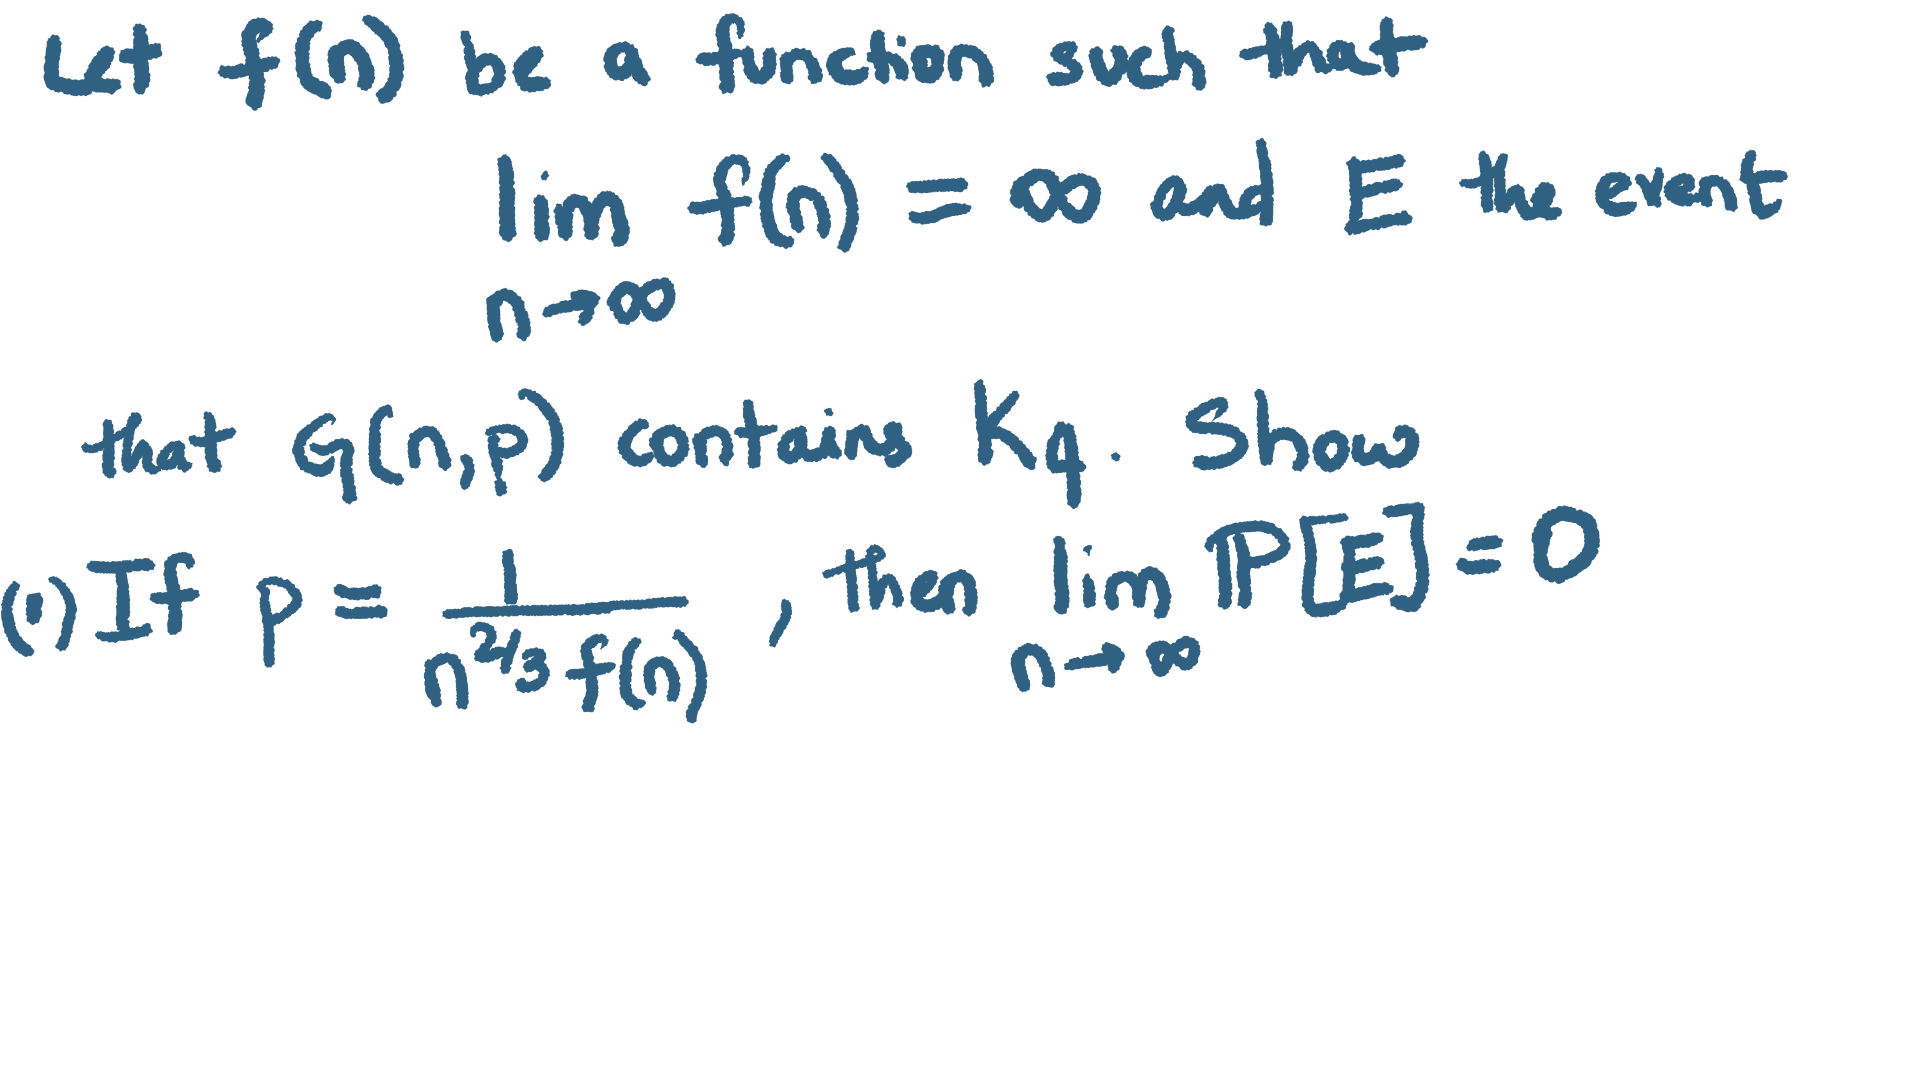 Let f(n) be a function such that
lim f(n) = ∞ and E the event
n→∞
that G(n,p) contains K₄. Show
(1) If p = 1/(n^{2/3} f(n)), then lim ℙ[E] = 0
n→∞